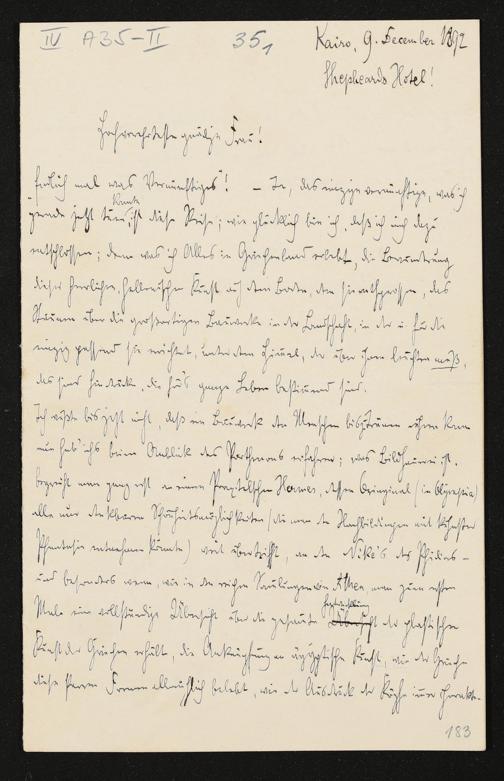 IV A35-II 35,
Kairo, 9. December 1892
Shepheards Hotel!
Hochverehrteste gnädige Frau!
Endlich mal was "Vernünftiges"! – Ja, das einzige vernünftige, was ich
gerade jetzt tun konnte ist diese Reise; wie glücklich bin ich, daß ich mich dazu
entschlossen; denn was ich Alles in Griechenland erlebt, die Bewunderung
dieser herrlichen, hellenischen Kunst auf dem Boden, dem sie entsprossen, das
Staunen über die großartigen Bauwerke in der Landschaft, in der u. für die
einzig passend sie errichtet, unter dem Himmel, der über ihnen leuchten muß,
das sind Eindrücke, die für's ganze Leben bestimmend sind.
Ich wußte bis jetzt nicht, daß ein Bauwerk den Menschen bis zu Tränen rühren kann
nun hab' ichs beim Anblick des Parthenons erfahren; was Bildhauerei ist,
begreift man ganz erst an einem Praxitelschen Hermes, dessen Original (in Olympia)
alle nur denkbaren Schönheitsmöglichkeiten (die man den Nachbildungen mit kühnster
Phantasie entnehmen könnte) weit übertrifft, an den Nike's des Phidias –
und besonders wenn, wie in den reichen Sammlungen von Athen, man zum ersten
Male eine vollständige Übersicht über die gesamte Entwicklung der plastischen
Kunst der Griechen erhält, die Anknüpfung an ägyptische Kunst, wie der Grieche
diese starren Formen allmählich belebt, wie der Ausdruck der Köpfe immer charakte-
183